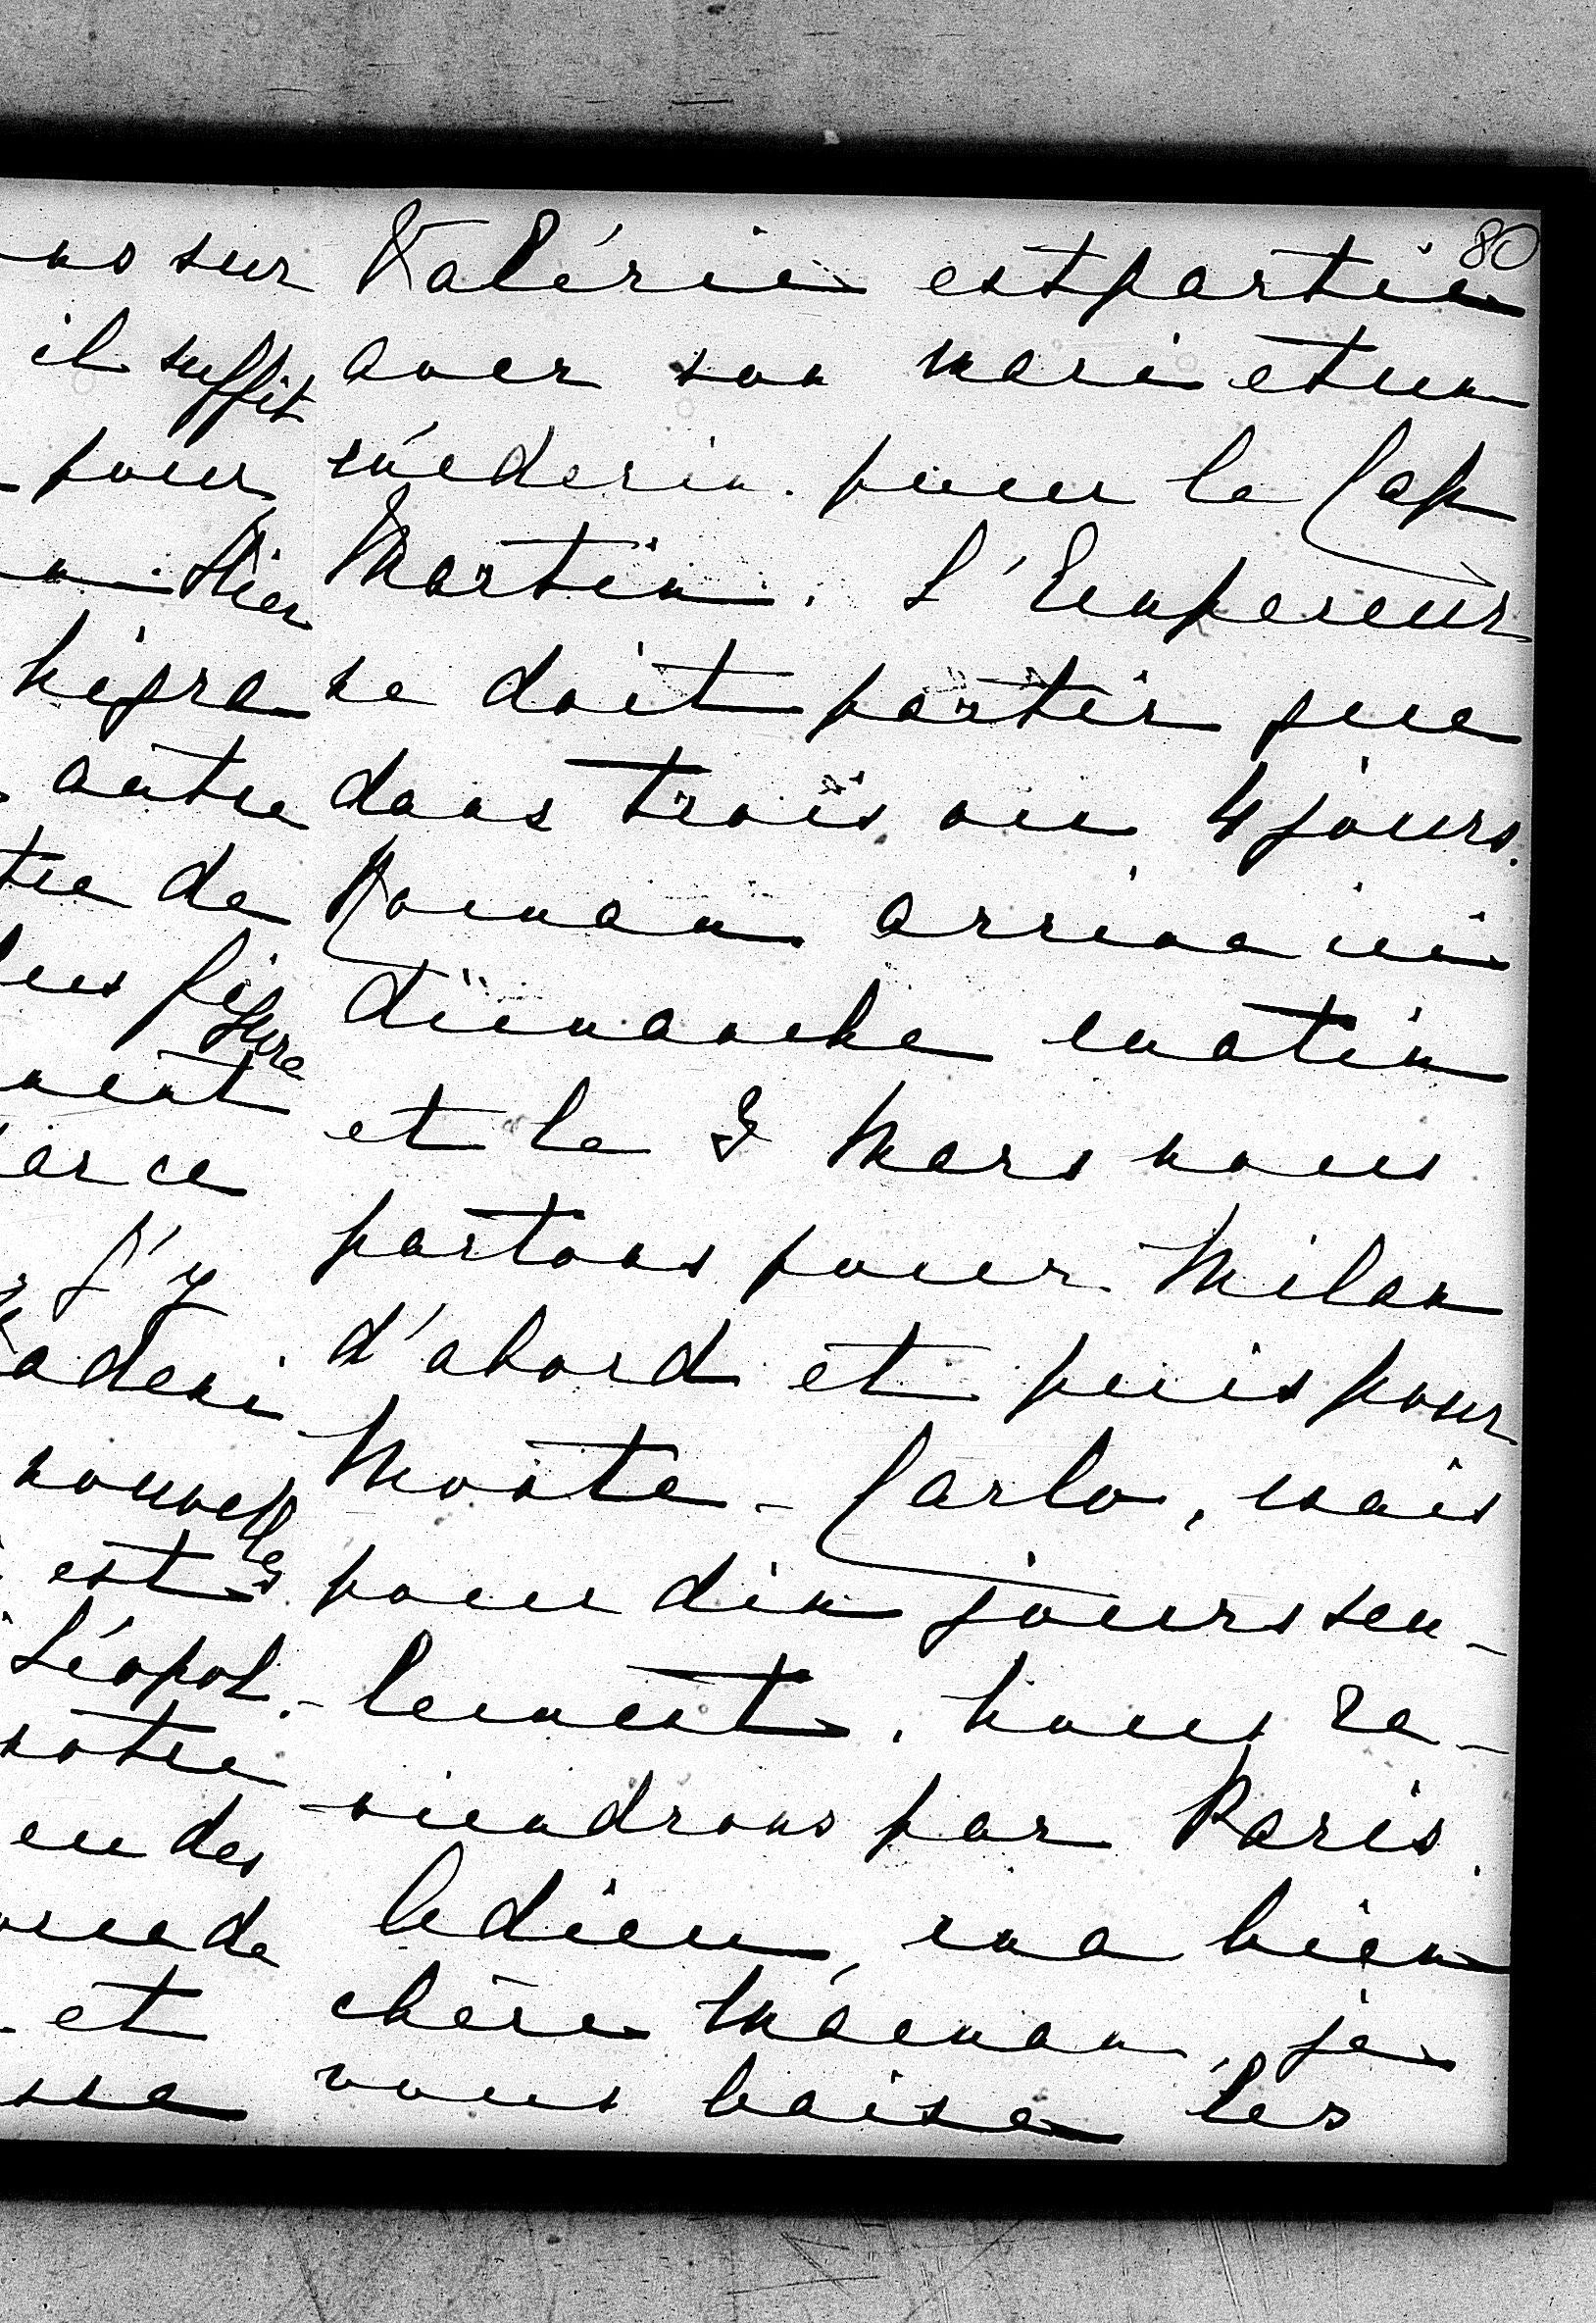 80
ns sur
il suffit
pour
Hier
autre
de
figure
ment
ar ce
j'y
adeni
nouvelles
est
Léopol-
notre
en des
de
et
sse
Valérie est partie
avec son mari et un
médecin pour le Cap
Martin. L'Empereur
ne doit partir que
dans trois ou 4 jours.
Roman arrive ici
dimanche matin
et le 3 Mars nous
partons pour Milan
d'abord et puis pour
Monte-Carlo, mais
pour dix jours seu-
lement. Nous re-
viendrons par Paris.
Adieu, ma bien
chère Maman, je
vous baise les